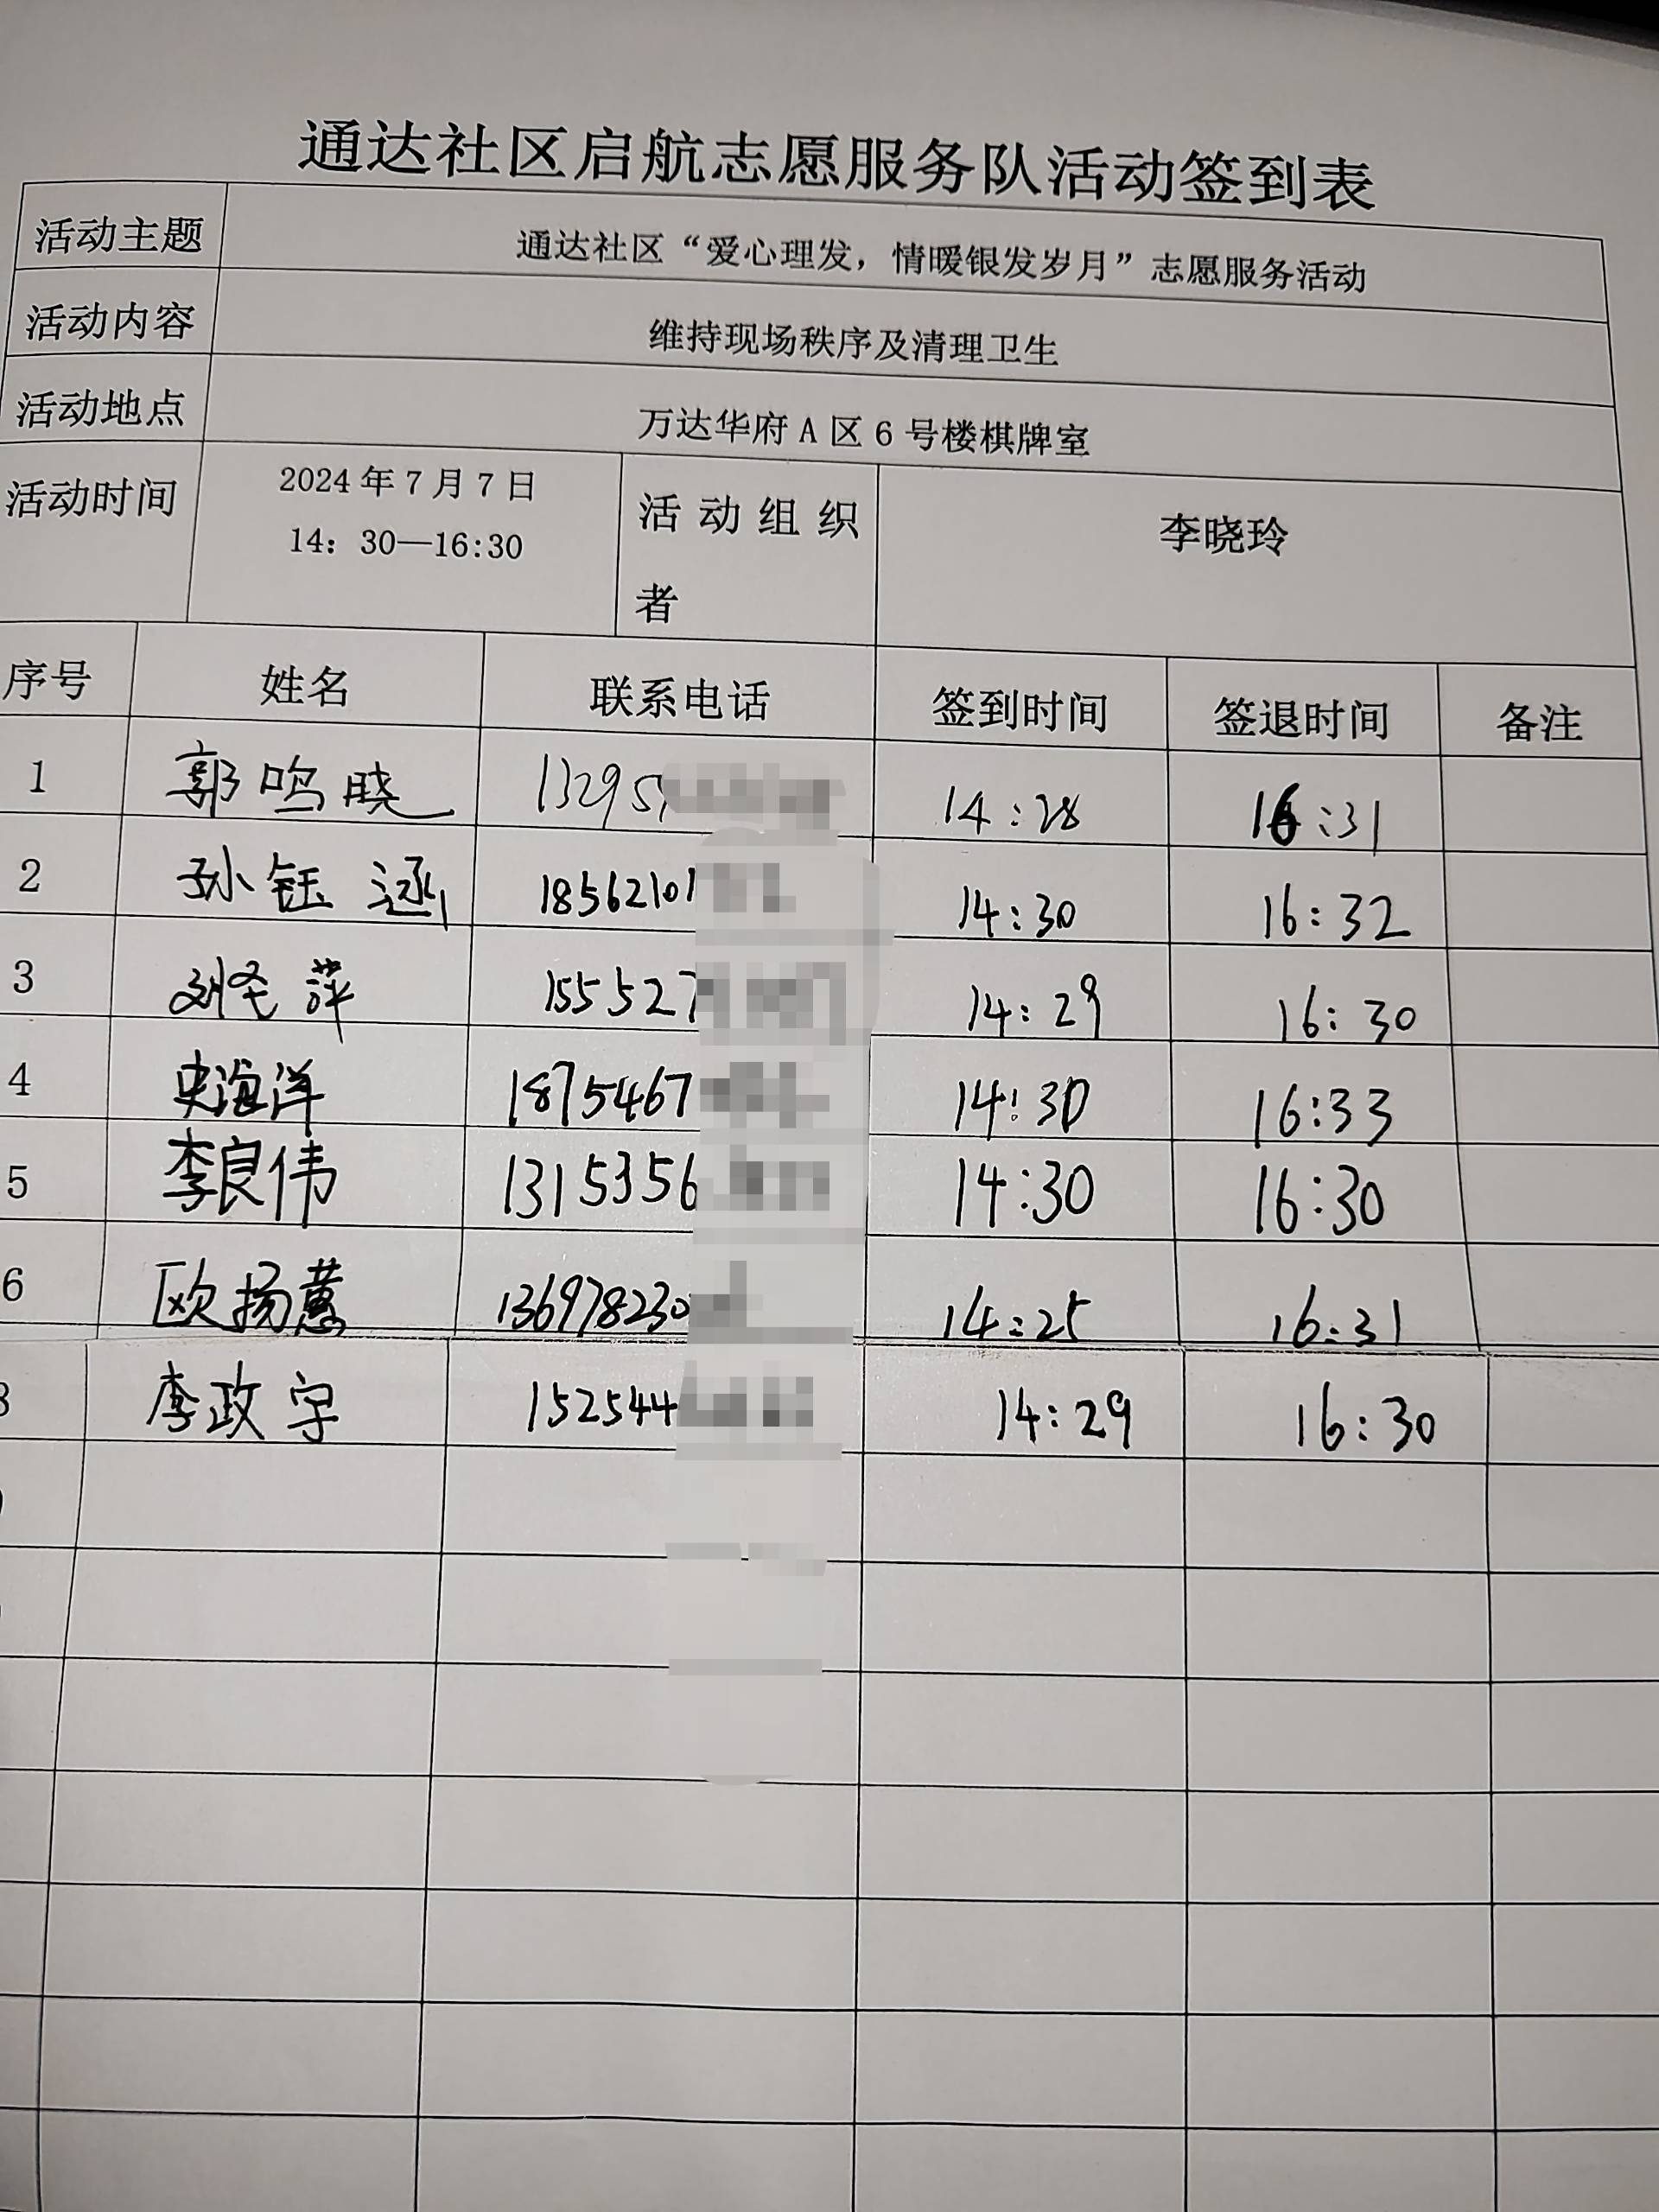 通达社区启航志愿服务队活动签到表
活动主题 通达社区“爱心理发，情暖银发岁月”志愿服务活动
活动内容 维持现场秩序及清理卫生
活动地点 万达华府 A 区 6 号楼棋牌室
活动时间 2024 年 7 月 7 日
14：30—16:30
活动组织
者
李晓玲
序号 姓名 联系电话 签到时间 签退时间 备注
1 郭鸣晓 13295 14:28 16:31
2 孙钰涵 18562101 14:30 16:32
3 刘 萍 155527 14:29 16:30
4 史海洋 1875467 14:30 16:33
5 李良伟 1315356 14:30 16:30
6 欧扬蕙 136978230 14:25 16:31
李政宇 1525444 14:29 16:30